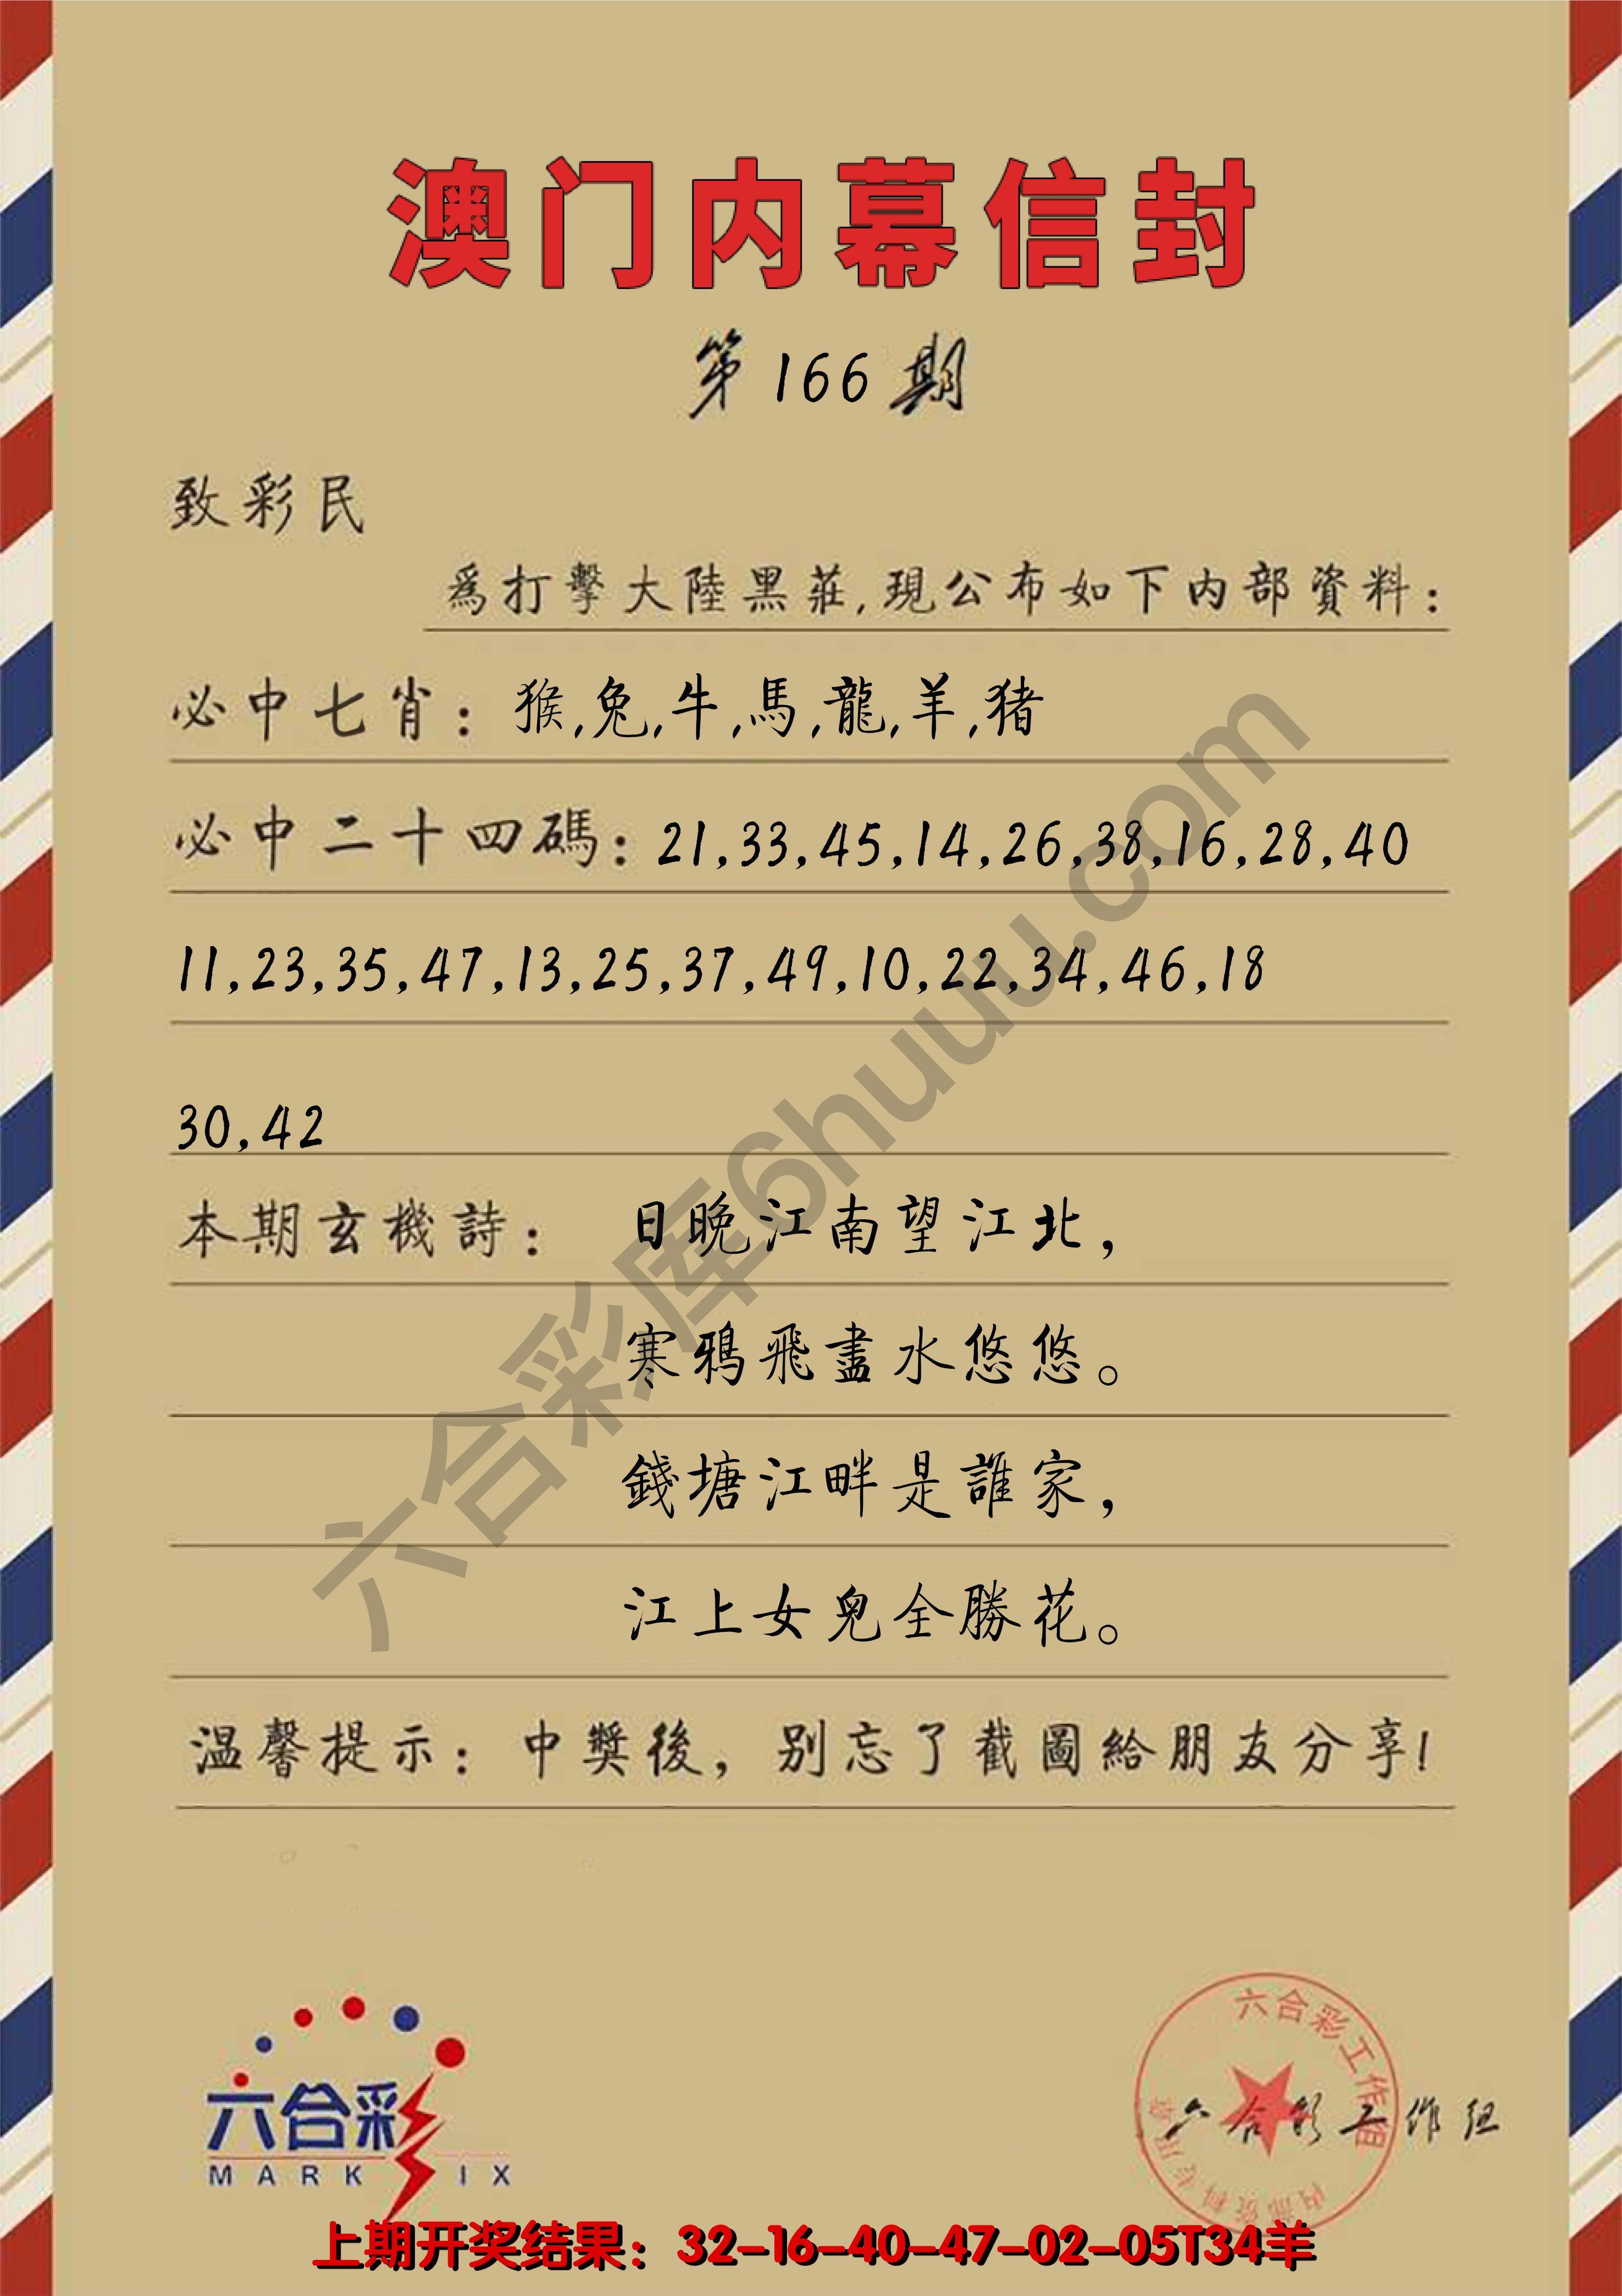 澳门内幕信封
第166期
致彩民
爲打擊大陸黑莊,現公布如下内部資料:
必中七肖: 猴,兔,牛,馬,龍,羊,猪
必中二十四碼: 21,33,45,14,26,38,16,28,40
11,23,35,47,13,25,37,49,10,22,34,46,18
30,42
本期玄機詩: 日晚江南望江北,
寒鴉飛盡水悠悠。
錢塘江畔是誰家,
江上女兒全勝花。
温馨提示: 中獎後, 别忘了截圖給朋友分享!
六合彩库6huuu.com
六合彩
MARK SIX
六合彩工作组
内部资料专用章
六合彩工作组
上期开奖结果: 32-16-40-47-02-05T34羊